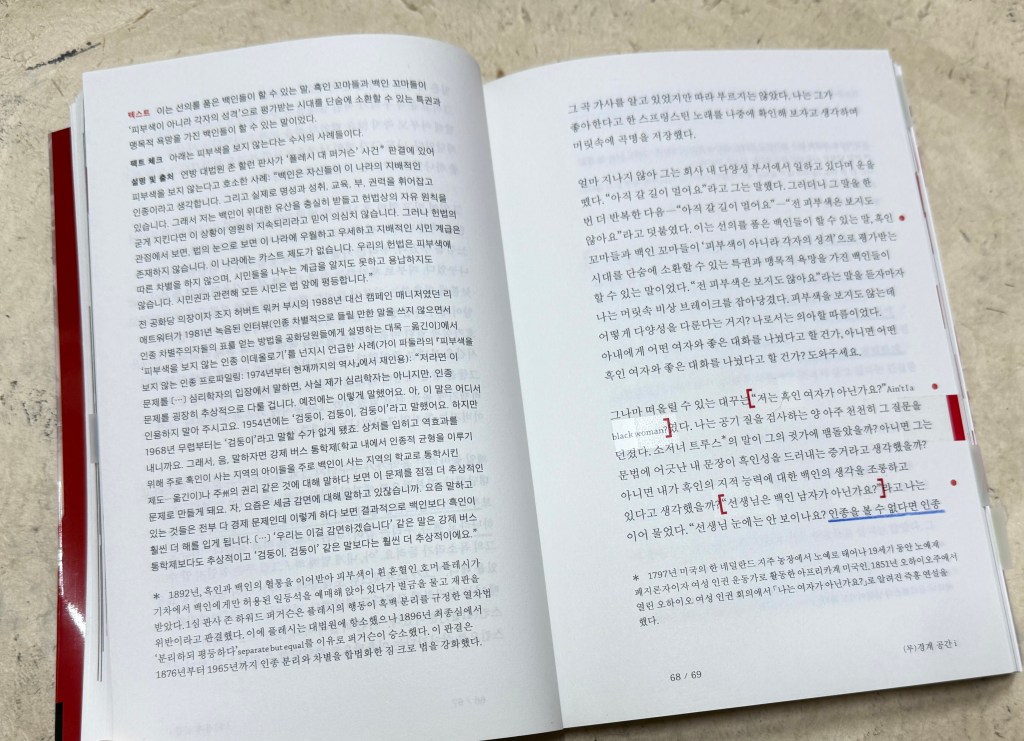 텍스트 이는 선의를 품은 백인들이 할 수 있는 말, 흑인 꼬마들과 백인 꼬마들이
'피부색이 아니라 각자의 성격'으로 평가받는 시대를 단숨에 소환할 수 있는 특권과
맹목적 욕망을 가진 백인들이 할 수 있는 말이었다.
팩트 체크 아래는 피부색을 보지 않는다는 수사의 사례들이다.
설명 및 출처 연방 대법원 존 할런 판사가 '플레시 대 퍼거슨' 사건* 판결에 있어
피부색을 보지 않는다고 호소한 사례: "백인은 자신들이 이 나라의 지배적인
인종이라고 생각합니다. 그리고 실제로 명성과 성취, 교육, 부, 권력을 쥐어잡고
있습니다. 그래서 저는 백인이 위대한 유산을 충실히 받들고 헌법상의 자유 원칙을
굳게 지킨다면 이 상황이 영원히 지속되리라고 믿어 의심치 않습니다. 그러나 헌법의
관점에서 보면, 법의 눈으로 보면 이 나라에 우월하고 우세하고 지배적인 시민 계급은
없습니다. 이 나라에는 카스트 제도가 없습니다. 우리의 헌법은 피부색에
따른 차별을 하지 않으며, 시민들을 나누는 계급을 알지도 못하고 용납하지도
않습니다. 시민권과 관련해 모든 시민은 법 앞에 평등합니다."
전 공화당 의장이자 조지 허버트 워커 부시의 1988년 대선 캠페인 매니저였던 리
애트워터가 1981년 녹음된 인터뷰(인종 차별적으로 들릴 만한 말을 쓰지 않으면서
인종 차별주의자들의 표를 얻는 방법을 공화당원들에게 설명하는 대목—옮긴이)에서
'피부색을 보지 않는 인종 이데올로기'를 넌지시 언급한 사례(가이 파둘라의 『피부색을
보지 않는 인종 프로파일링: 1974년부터 현재까지의 역사』에서 재인용): "저라면 이
문제를 (…) 심리학자의 입장에서 말하면, 사실 제가 심리학자는 아니지만, 인종
문제를 굉장히 추상적으로 다룰 겁니다. 예전에는 이렇게 말했어요. 아, 이 말은 어디서
인용하지 말아 주시고요. 1954년에는 '검둥이, 검둥이, 검둥이'라고 말했어요. 하지만
1968년 무렵부터는 '검둥이'라고 말할 수가 없게 됐죠. 상처를 입히고 역효과를
내니까요. 그래서, 음, 말하자면 강제 버스 통학제(학교 내에서 인종적 균형을 이루기
위해 주로 흑인이 사는 지역의 아이들을 주로 백인이 사는 지역의 학교로 통학시킨
제도—옮긴이)나 주州의 권리 같은 것에 대해 말하다 보면 이 문제를 점점 더 추상적인
문제로 만들게 돼요. 자, 요즘은 세금 감면에 대해 말하고 있잖습니까. 요즘 말하고
있는 것들은 전부 다 경제 문제인데 이렇게 하다 보면 결과적으로 백인보다 흑인이
훨씬 더 해를 입게 됩니다. (…) '우리는 이걸 감면하겠습니다' 같은 말은 강제 버스
통학제보다도 추상적이고 '검둥이, 검둥이' 같은 말보다는 훨씬 더 추상적이에요."
* 1892년, 흑인과 백인의 혈통을 이어받아 피부색이 흰 혼혈인 호머 플레시가
기차에서 백인에게만 허용된 일등석을 예매해 앉아 있다가 벌금을 물고 재판을
받았다. 1심 판사 존 하워드 퍼거슨은 플레시의 행동이 흑백 분리를 규정한 열차법
위반이라고 판결했다. 이에 플레시는 대법원에 항소했으나 1896년 최종심에서
'분리하되 평등하다'separate but equal를 이유로 퍼거슨이 승소했다. 이 판결은
1876년부터 1965년까지 인종 분리와 차별을 합법화한 짐 크로 법을 강화했다.
그 곡 가사를 알고 있었지만 따라 부르지는 않았다. 나는 그가
좋아한다고 한 스프링스틴 노래를 나중에 확인해 보자고 생각하며
머릿속에 곡명을 저장했다.
얼마 지나지 않아 그는 회사 내 다양성 부서에서 일하고 있다며 운을
뗐다. "아직 갈 길이 멀어요"라고 그는 말했다. 그러더니 그 말을 한
번 더 반복한 다음—"아직 갈 길이 멀어요"—"전 피부색은 보지도
않아요"라고 덧붙였다. 이는 선의를 품은 백인들이 할 수 있는 말, 흑인
꼬마들과 백인 꼬마들이 '피부색이 아니라 각자의 성격'으로 평가받는
시대를 단숨에 소환할 수 있는 특권과 맹목적 욕망을 가진 백인들이
할 수 있는 말이었다. "전 피부색은 보지도 않아요"라는 말을 듣자마자
나는 머릿속 비상 브레이크를 잡아당겼다. 피부색을 보지도 않는데
어떻게 다양성을 다룬다는 거지? 나로서는 의아할 따름이었다.
아내에게 어떤 여자와 좋은 대화를 나눴다고 할 건가, 아니면 어떤
흑인 여자와 좋은 대화를 나눴다고 할 건가? 도와주세요.
그나마 떠올릴 수 있는 대꾸는 "저는 흑인 여자가 아닌가요?"Ain't I a
black woman?였다. 나는 공기 질을 검사하는 양 아주 천천히 그 질문을
던졌다. 소저너 트루스*의 말이 그의 귓가에 맴돌았을까? 아니면 그는
문법에 어긋난 내 문장이 흑인성을 드러내는 증거라고 생각했을까?
아니면 내가 흑인의 지적 능력에 대한 백인의 생각을 조롱하고
있다고 생각했을까? "선생님은 백인 남자가 아닌가요?"라고 나는
이어 물었다. "선생님 눈에는 안 보이나요? 인종을 볼 수 없다면 인종
* 1797년 미국의 한 네덜란드 지주 농장에서 노예로 태어나 19세기 동안 노예제
폐지론자이자 여성 인권 운동가로 활동한 아프리카계 미국인. 1851년 오하이오주에서
열린 오하이오 여성 인권 회의에서 「나는 여자가 아닌가요?」로 알려진 즉흥 연설을
했다.
68 / 69
(투)경계 공간 i